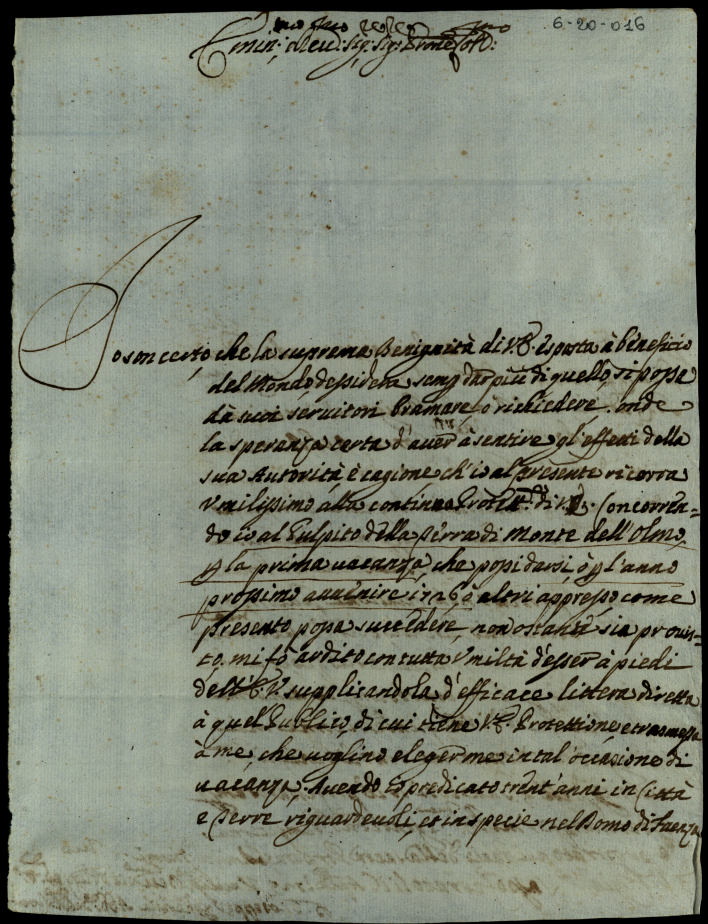 6-20-016
Emin:mo e Reu:mo Sig:re Sig:re Prone Col:mo
Io son certo che la suprema Benignità di V.E. esposta à beneficio
del Mondo, dessidera semp dar più di quello, si possa
dà suoi seruitori bramare, ò richiedere. onde
la speranza certa d'auer à sentire gl'effetti della
sua Autorità è cagione ch'io al presente ricorra
Vmilissimo alla continua Protett:ne di V.E. Concorren-
do io al Pulpito della Terra di Monte dell'Olmo,
p la prima uacanza, che possi darsi, ò p l'anno
prossimo auuenire 1726, ò altri appresso come
presento possa succedere, non ostante sia prouis-
to, mi fò ardito con tutta Vmiltà d'esser à piedi
dell'E.V. supplicandola d'efficace littera diretta
à quel Publico, di cui tiene V.E. Protettione, e trasmessa
à me, che uoglino elegerme in tal occasione di
uacanza. Auendo io predicato trent'anni in Città
e Terre riguardeuoli, et in specie nel Domo di Faenza